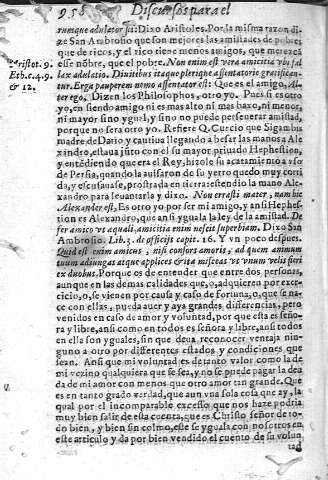 958 Discursos para el
rumque adulator sit: Dixo Aristoles. Por la misma razon di
ze San Ambrosio que son mejores las amistades de pobres
que de ricos, y el rico tiene menos amigos, que merezca
esse nõbre, que el pobre. Non enim est vera amicitia vbi fal
lax adulatio. Diuitibus itaque plerique assentatoris gratifican
tur. Erga pauperem nemo assentator est: Que es el amigo, Al-
ter ego, Dizen los Philosophos, otro yo. Pues si es otro
yo, en siendo amigo ni es mas alto ni mas baxo, ni menor,
ni mayor sino ygual, y sino no puede perseuerar amistad,
porque no sera otro yo. Refiere Q. Curcio que Sigambis
madre de Dario y cautiua llegando a besar las manos a Ale
xandro, estaua justo con el su mayor priuado Hephestion,
y entẽdiendo que era el Rey, hizole su acatamiento a vso
de Persia, quando la auisaron de su yerro quedo muy corri
da, y escusauase, prostrada en tierra estendio la mano Ale
xandro para leuantarla y dixo. Non errasti mater, nam hic
Alexander est, Es otro yo por ser mi amigo, y ansi Hephes-
tion es Alexandro, que ansi yguala la ley de la amistad. De
fer amico vt equali, amicitia enim nescit superbiam. Dixo San
Ambrosio. Lib. 3. de officijs capit. 16. Y vn poco despues.
Quid est enim amicus, nisi consors amoris, ad quem animum
tuum adiungas atque applices & ita misceas vt vnum velis fieri
ex duobus. Porque es de entender que entre dos personas,
aunque en las demas calidades que, o, adquieren por exer-
cicio, o, se vienen por caso y caso de fortuna, o, que se na-
çe con ellas, pueda auer y aya grandes differencias, pero
venidos en caso de amor y voluntad, por que esta es seño
ra y libre, ansi como en todos es señora y libre, ansi todos
en ella son yguales, sin que deua reconocer ventaja nin-
guno a otro por differentes estados y condiciones que
sean. Ansi que mi voluntad es de tanto valor como la de
mi vezino qualquiera que sea, y no se puede pagar la deu
da de mi amor con menos que otro amor tan grande. Que
es en tanto grado verdad, que aun vna sola cosa que ay, la
qual por el incomparable excesso que nos haze podria
muy bien salir de esta cuenta, que es Christo señor de to-
do bien, y bien sin colmo, este se yguala con nosotros en
este articulo y da por bien vendido el cuento de su volun
tad
Aristot. 9.
Eth. c. 4. 9.
& 12.